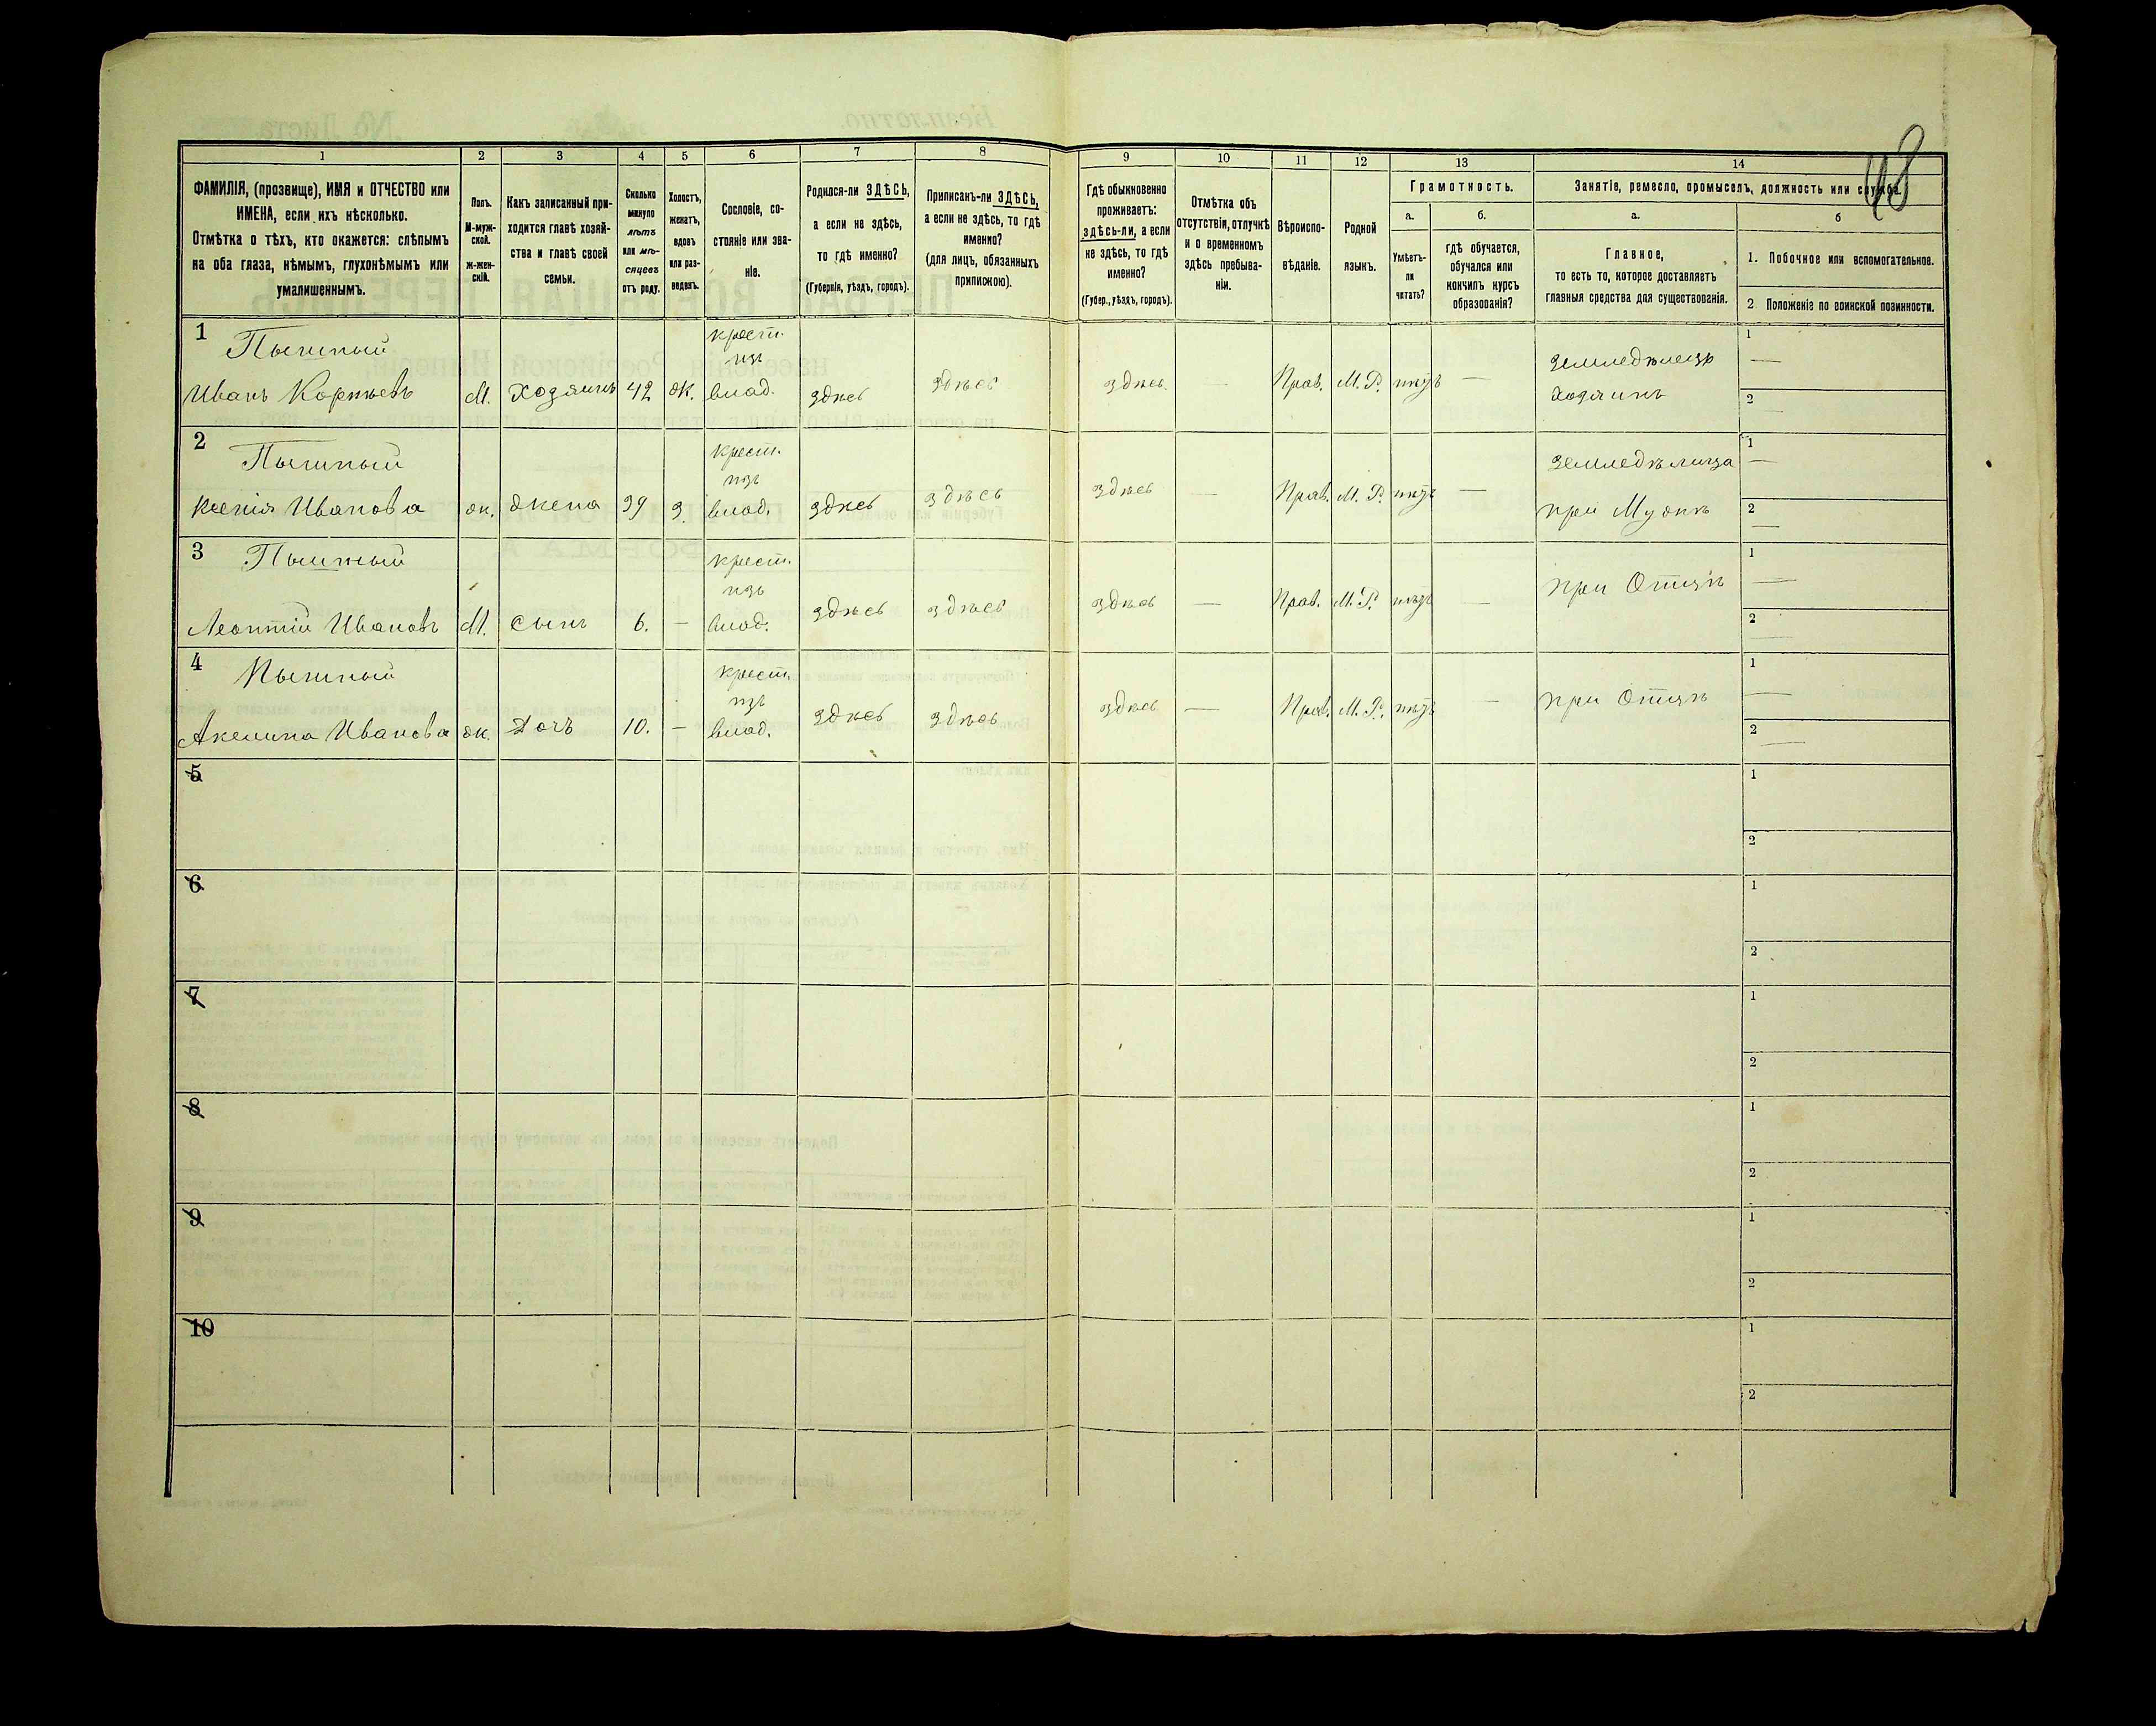 48
1 2 3 4 5 6 7 8 9 10 11 12 13 14
ФАМИЛІЯ, (прозвище), ИМЯ и ОТЧЕСТВО или
ИМЕНА, если ихъ нѣсколько.
Отмѣтка о тѣхъ, кто окажется: слѣпымъ
на оба глаза, нѣмымъ, глухонѣмымъ или
умалишеннымъ.
Полъ.
М-муж-
ской.
ж-жен-
скій.
Какъ записанный при-
ходится главѣ хозяй-
ства и главѣ своей
семьи.
Сколько
минуло
лѣтъ
или мѣ-
сяцевъ
отъ роду.
Холостъ,
женатъ,
вдовъ
или раз-
веденъ.
Сословіе, со-
стояніе или зва-
ніе.
Родился-ли ЗДѢСЬ,
а если не здѣсь,
то гдѣ именно?
(Губернія, уѣздъ, городъ).
Приписанъ-ли ЗДѢСЬ,
а если не здѣсь, то гдѣ
именно?
(для лицъ, обязанныхъ
припискою).
Гдѣ обыкновенно
проживаетъ:
здѣсь-ли, а если
не здѣсь, то гдѣ
именно?
(Губер., уѣздъ, городъ).
Отмѣтка объ
отсутствіи, отлучкѣ
и о временномъ
здѣсь пребыва-
ніи.
Вѣроиспо-
вѣданіе.
Родной
языкъ.
Грамотность.
а.
Умѣетъ-
ли
читать?
б.
гдѣ обучается,
обучался или
кончилъ курсъ
образованія?
Занятіе, ремесло, промыселъ, должность или служба.
а.
Главное,
то есть то, которое доставляетъ
главныя средства для существованія.
б
1. Побочное или вспомогательное.
2 Положеніе по воинской повинности.
1 Пышный
Иванъ Корнѣевъ
М.
Хозяинъ
42
ж.
крест.
изъ
влад.
здѣсь
здѣсь
здѣсь
—
Прав.
М. Р.
нѣтъ
—
земледѣлецъ
Хозяинъ
1 —
2 —
2 Пышный
Ксенія Иванова
ж.
жена
39
з.
крест.
изъ
влад.
здѣсь
здѣсь
здѣсь
—
Прав.
М. Р.
нѣтъ
—
земледѣлица
при Мужѣ
1 —
2 —
3 Пышный
Леонтій Ивановъ
М.
сынъ
6.
—
крест.
изъ
влад.
здѣсь
здѣсь
здѣсь
—
Прав.
М. Р.
нѣтъ
—
при Отцѣ
1 —
2 —
4 Пышный
Акелина Иванова
ж.
Дочь
10.
—
крест.
изъ
влад.
здѣсь
здѣсь
здѣсь
—
Прав.
М. Р.
нѣтъ
—
при Отцѣ
1 —
2 —
5
1
2
6
1
2
7
1
2
8
1
2
9
1
2
10
1
2